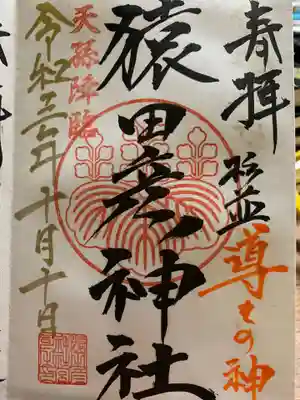 奉拝
杉並
導きの神
猿田彦神社
天孫降臨
令和三年十月十日